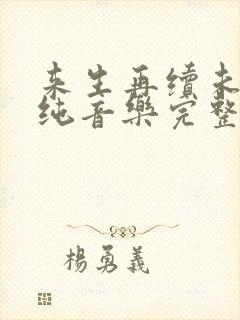 来生再續未
纯音樂完整
楊勇義